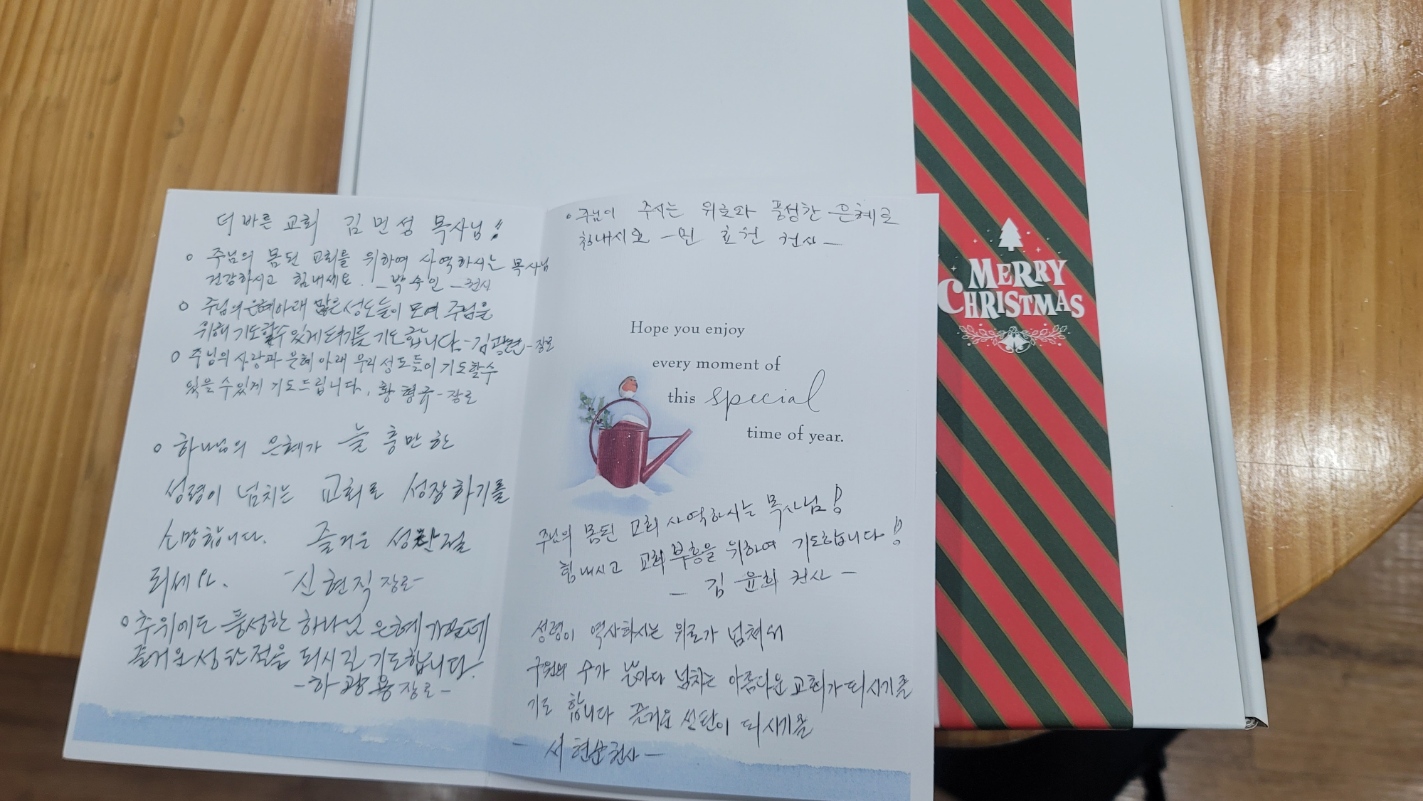 더바른교회 김민성 목사님!!
○ 주님의 몸된 교회를 위하여 사역하시는 목사님
건강하시고 힘내세요. -박수인-권사
○ 주님의은혜아래 많은 성도들이 모여 주님을
위해 기도할수있게되기를 기도합니다.-김광현-장로
○ 주님의 사랑과 은혜 아래 우리 성도들이 기도할수
있을 수있게 기도드립니다. 황형규-장로
○ 하나님의 은혜가 늘 충만한
성령이 넘치는 교회로 성장하기를
소망합니다. 즐거운 성탄절
되세요. -신현직장로-
○ 추위에도 풍성한 하나님 은혜 가운데
즐거운성탄절을 되시길 기도합니다.
-하광용장로-
○ 주님이 주시는 위로와 풍성한 은혜로
힘내시오 -민효선 권사-
Hope you enjoy
every moment of
this special
time of year.
주님의 몸된 교회 사역하시는 목사님!
힘내시고 교회부흥을 위하여 기도합니다!!
- 김윤희 권사 -
성령이 역사하시는 위로가 넘쳐서
구원의 수가 날마다 넘치는 아름다운 교회가되시기를
기도 합니다 즐거운 성탄이 되시기를
- 서현순권사-
MERRY
CHRISTMAS